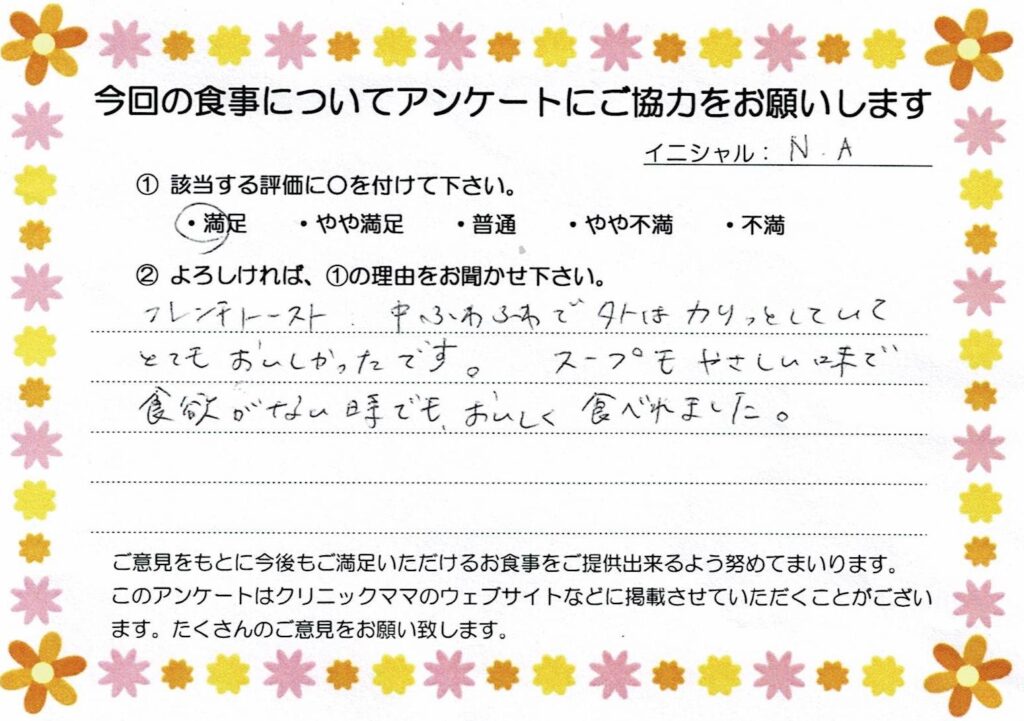 今回の食事についてアンケートにご協力をお願いします
イニシャル： N. A
① 該当する評価に〇を付けて下さい。
・満足 ・やや満足 ・普通 ・やや不満 ・不満
② よろしければ、①の理由をお聞かせ下さい。
フレンチトースト 中ふわふわで外はカリっとしていて
とてもおいしかったです。 スープもやさしい味で
食欲がない時でも、おいしく食べれました。
ご意見をもとに今後もご満足いただけるお食事をご提供出来るよう努めてまいります。
このアンケートはクリニックママのウェブサイトなどに掲載させていただくことがござい
ます。たくさんのご意見をお願い致します。